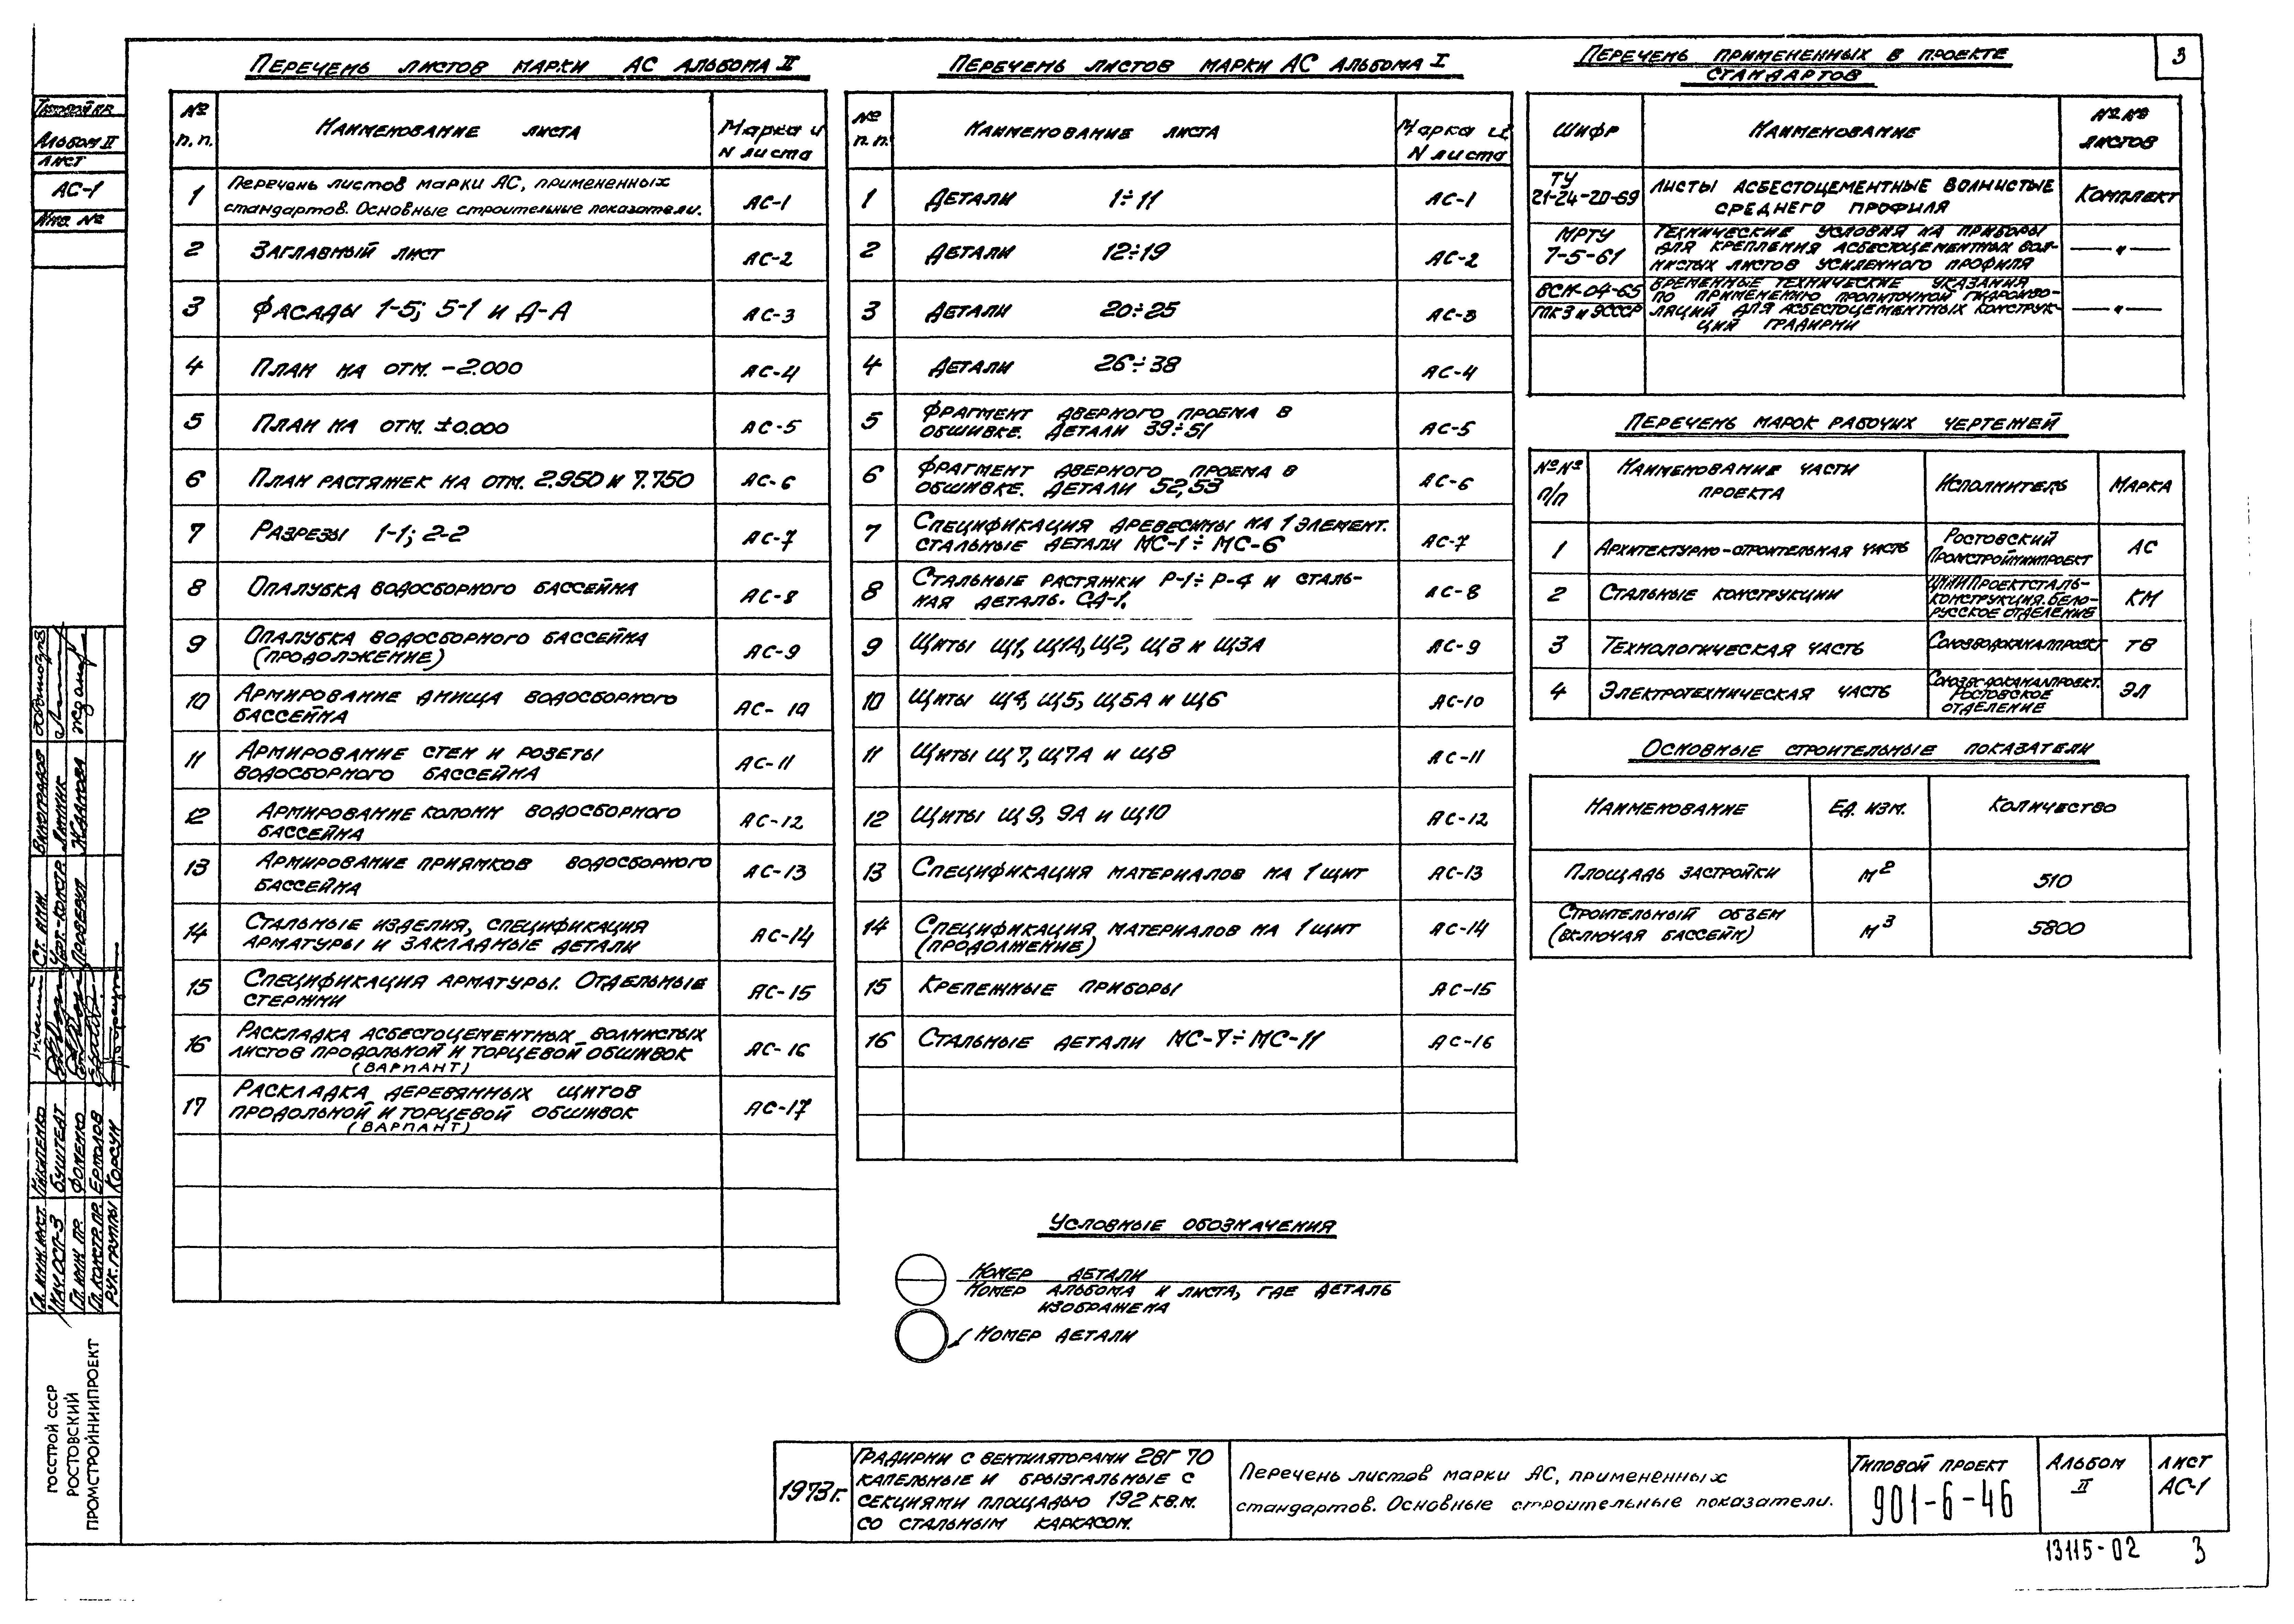 3
Перечень листов марки АС альбома II
№ п.п. Наименование листа Марка и N листа
1 Перечень листов марки АС, примененных
стандартов. Основные строительные показатели. АС-1
2 Заглавный лист АС-2
3 Фасады 1-5; 5-1 и Д-А АС-3
4 План на отм. -2.000 АС-4
5 План на отм. ±0.000 АС-5
6 План растяжек на отм. 2.950 и 7.750 АС-6
7 Разрезы 1-1; 2-2 АС-7
8 Опалубка водосборного бассейна АС-8
9 Опалубка водосборного бассейна
(продолжение) АС-9
10 Армирование днища водосборного
бассейна АС-10
11 Армирование стен и розеты
водосборного бассейна АС-11
12 Армирование колонн водосборного
бассейна АС-12
13 Армирование приямков водосборного
бассейна АС-13
14 Стальные изделия, спецификация
арматуры и закладные детали АС-14
15 Спецификация арматуры. Отдельные
стержни АС-15
16 Раскладка асбестоцементных волнистых
листов продольной и торцевой обшивок
(вариант) АС-16
17 Раскладка деревянных щитов
продольной и торцевой обшивок
(вариант) АС-17
Перечень листов марки АС альбома I
№ п.п. Наименование листа Марка и N листа
1 Детали 1÷11 АС-1
2 Детали 12÷19 АС-2
3 Детали 20÷25 АС-3
4 Детали 26÷38 АС-4
5 Фрагмент дверного проема в
обшивке. Детали 39÷51 АС-5
6 Фрагмент дверного проема в
обшивке. Детали 52,53 АС-6
7 Спецификация древесины на 1 элемент.
Стальные детали МС-1÷МС-6 АС-7
8 Стальные растяжки Р-1÷Р-4 и сталь-
ная деталь. СД-1. АС-8
9 Щиты Щ1, Щ1А, Щ2, Щ3 и Щ3А АС-9
10 Щиты Щ4, Щ5, Щ5А и Щ6 АС-10
11 Щиты Щ7, Щ7А и Щ8 АС-11
12 Щиты Щ9, 9А и Щ10 АС-12
13 Спецификация материалов на 1 щит АС-13
14 Спецификация материалов на 1 щит
(продолжение) АС-14
15 Крепежные приборы АС-15
16 Стальные детали МС-7÷МС-11 АС-16
Условные обозначения
Номер детали
Номер альбома и листа, где деталь
изображена
Номер детали
Перечень примененных в проекте
стандартов
Шифр Наименование №№ листов
ТУ
21-24-20-69 Листы асбестоцементные волнистые
среднего профиля Комплект
МРТУ
7-5-61 Технические условия на приборы
для крепления асбестоцементных вол-
нистых листов усиленного профиля —"—
ВСН-04-65
ГПКЭ и ЭСССР Временные технические указания
по применению пропиточной гидроизо-
ляций для асбестоцементных конструк-
ций градирни —"—
Перечень марок рабочих чертежей
№№ п/п Наименование части проекта Исполнитель Марка
1 Архитектурно-строительная часть Ростовский
Промстройниипроект АС
2 Стальные конструкции ЦНИИпроектсталь-
конструкция. Бело-
русское отделение КМ
3 Технологическая часть Союзводоканалпроект ТВ
4 Электротехническая часть Союзводоканалпроект.
Ростовское
отделение ЭЛ
Основные строительные показатели
Наименование Ед. изм. Количество
Площадь застройки м² 510
Строительный объем
(включая бассейн) м³ 5800
1973г.
Градирни с вентиляторами 2ВГ 70
капельные и брызгальные с
секциями площадью 192 кв.м.
со стальным каркасом.
Перечень листов марки АС, примененных
стандартов. Основные строительные показатели.
Типовой проект
901-6-46
Альбом
II
лист
АС-1
13115-02 3
Типовой пр.
Альбом II
лист
АС-1
Инв. №
Ст. инж. Виноградов
Уст.-констр. Линник
Проверил Жданова
Гл. инж. инст. Никитенко
Нач. ОСП-3 Буштедт
Гл. инж. пр. Фоменко
Гл. констр. пр. Ермолов
Рук. группы Корсун
Госстрой СССР
Ростовский
Промстройниипроект